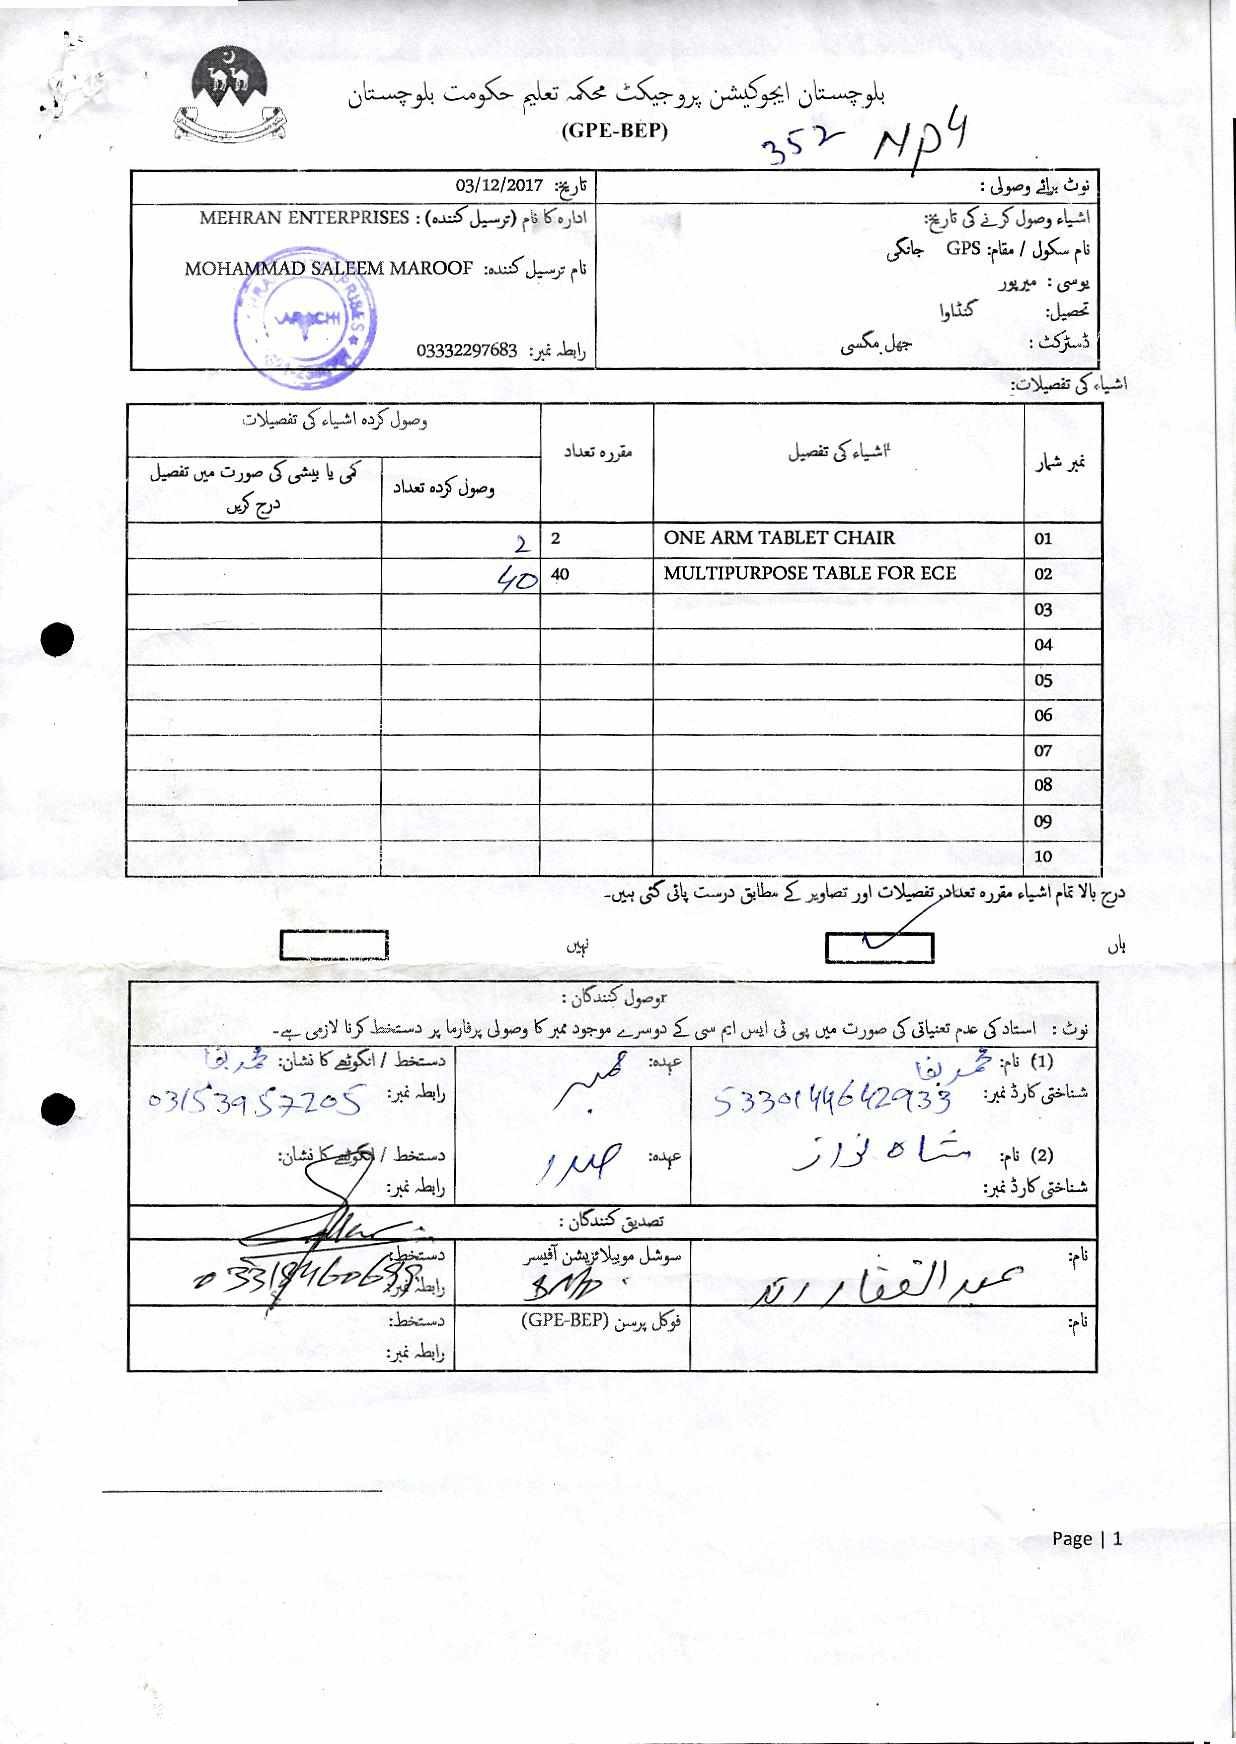 بلوچستان ایجوکیشن پروجیکٹ محکمہ تعلیم حکومت بلوچستان
(GPE-BEP)
352 NP4
نوٹ برائے وصولی :
تاریخ: 03/12/2017
اشیاء وصول کرنے کی تاریخ:
نام سکول / مقام: GPS جانگی
یوسی : میرپور
تحصیل: گنڈاوا
ڈسٹرکٹ : جھل مگسی
ادارہ کا نام (ترسیل کنندہ) : MEHRAN ENTERPRISES
نام ترسیل کنندہ: MOHAMMAD SALEEM MAROOF
KARACHI
رابطہ نمبر: 03332297683
اشیاء کی تفصیلات:
نمبر شمار اشیاء کی تفصیل مقررہ تعداد وصول کردہ اشیاء کی تفصیلات
وصول کردہ تعداد کمی یا بیشی کی صورت میں تفصیل درج کریں
01 ONE ARM TABLET CHAIR 2 2
02 MULTIPURPOSE TABLE FOR ECE 40 40
03
04
05
06
07
08
09
10
درج بالا تمام اشیاء مقررہ تعداد, تفصیلات اور تصاویر کے مطابق درست پائی گئی ہیں۔
ہاں ✓ نہیں
وصول کنندگان :
نوٹ : استاد کی عدم تعنیاتی کی صورت میں پی ٹی ایس ایم سی کے دوسرے موجود ممبر کا وصولی پرفارما پر دستخط کرنا لازمی ہے۔
(1) نام: محمد بقا عہدہ: ممبر دستخط / انگوٹھے کا نشان: محمد بقا
شناختی کارڈ نمبر: 5330144642933 رابطہ نمبر: 03153957205
(2) نام: شاہ نواز عہدہ: صدر دستخط / انگوٹھے کا نشان:
شناختی کارڈ نمبر: رابطہ نمبر:
تصدیق کنندگان :
نام: عبدالغفار رند سوشل موبیلائزیشن آفیسر دستخط:
رابطہ نمبر:
نام: فوکل پرسن (GPE-BEP) دستخط:
رابطہ نمبر:
Page | 1